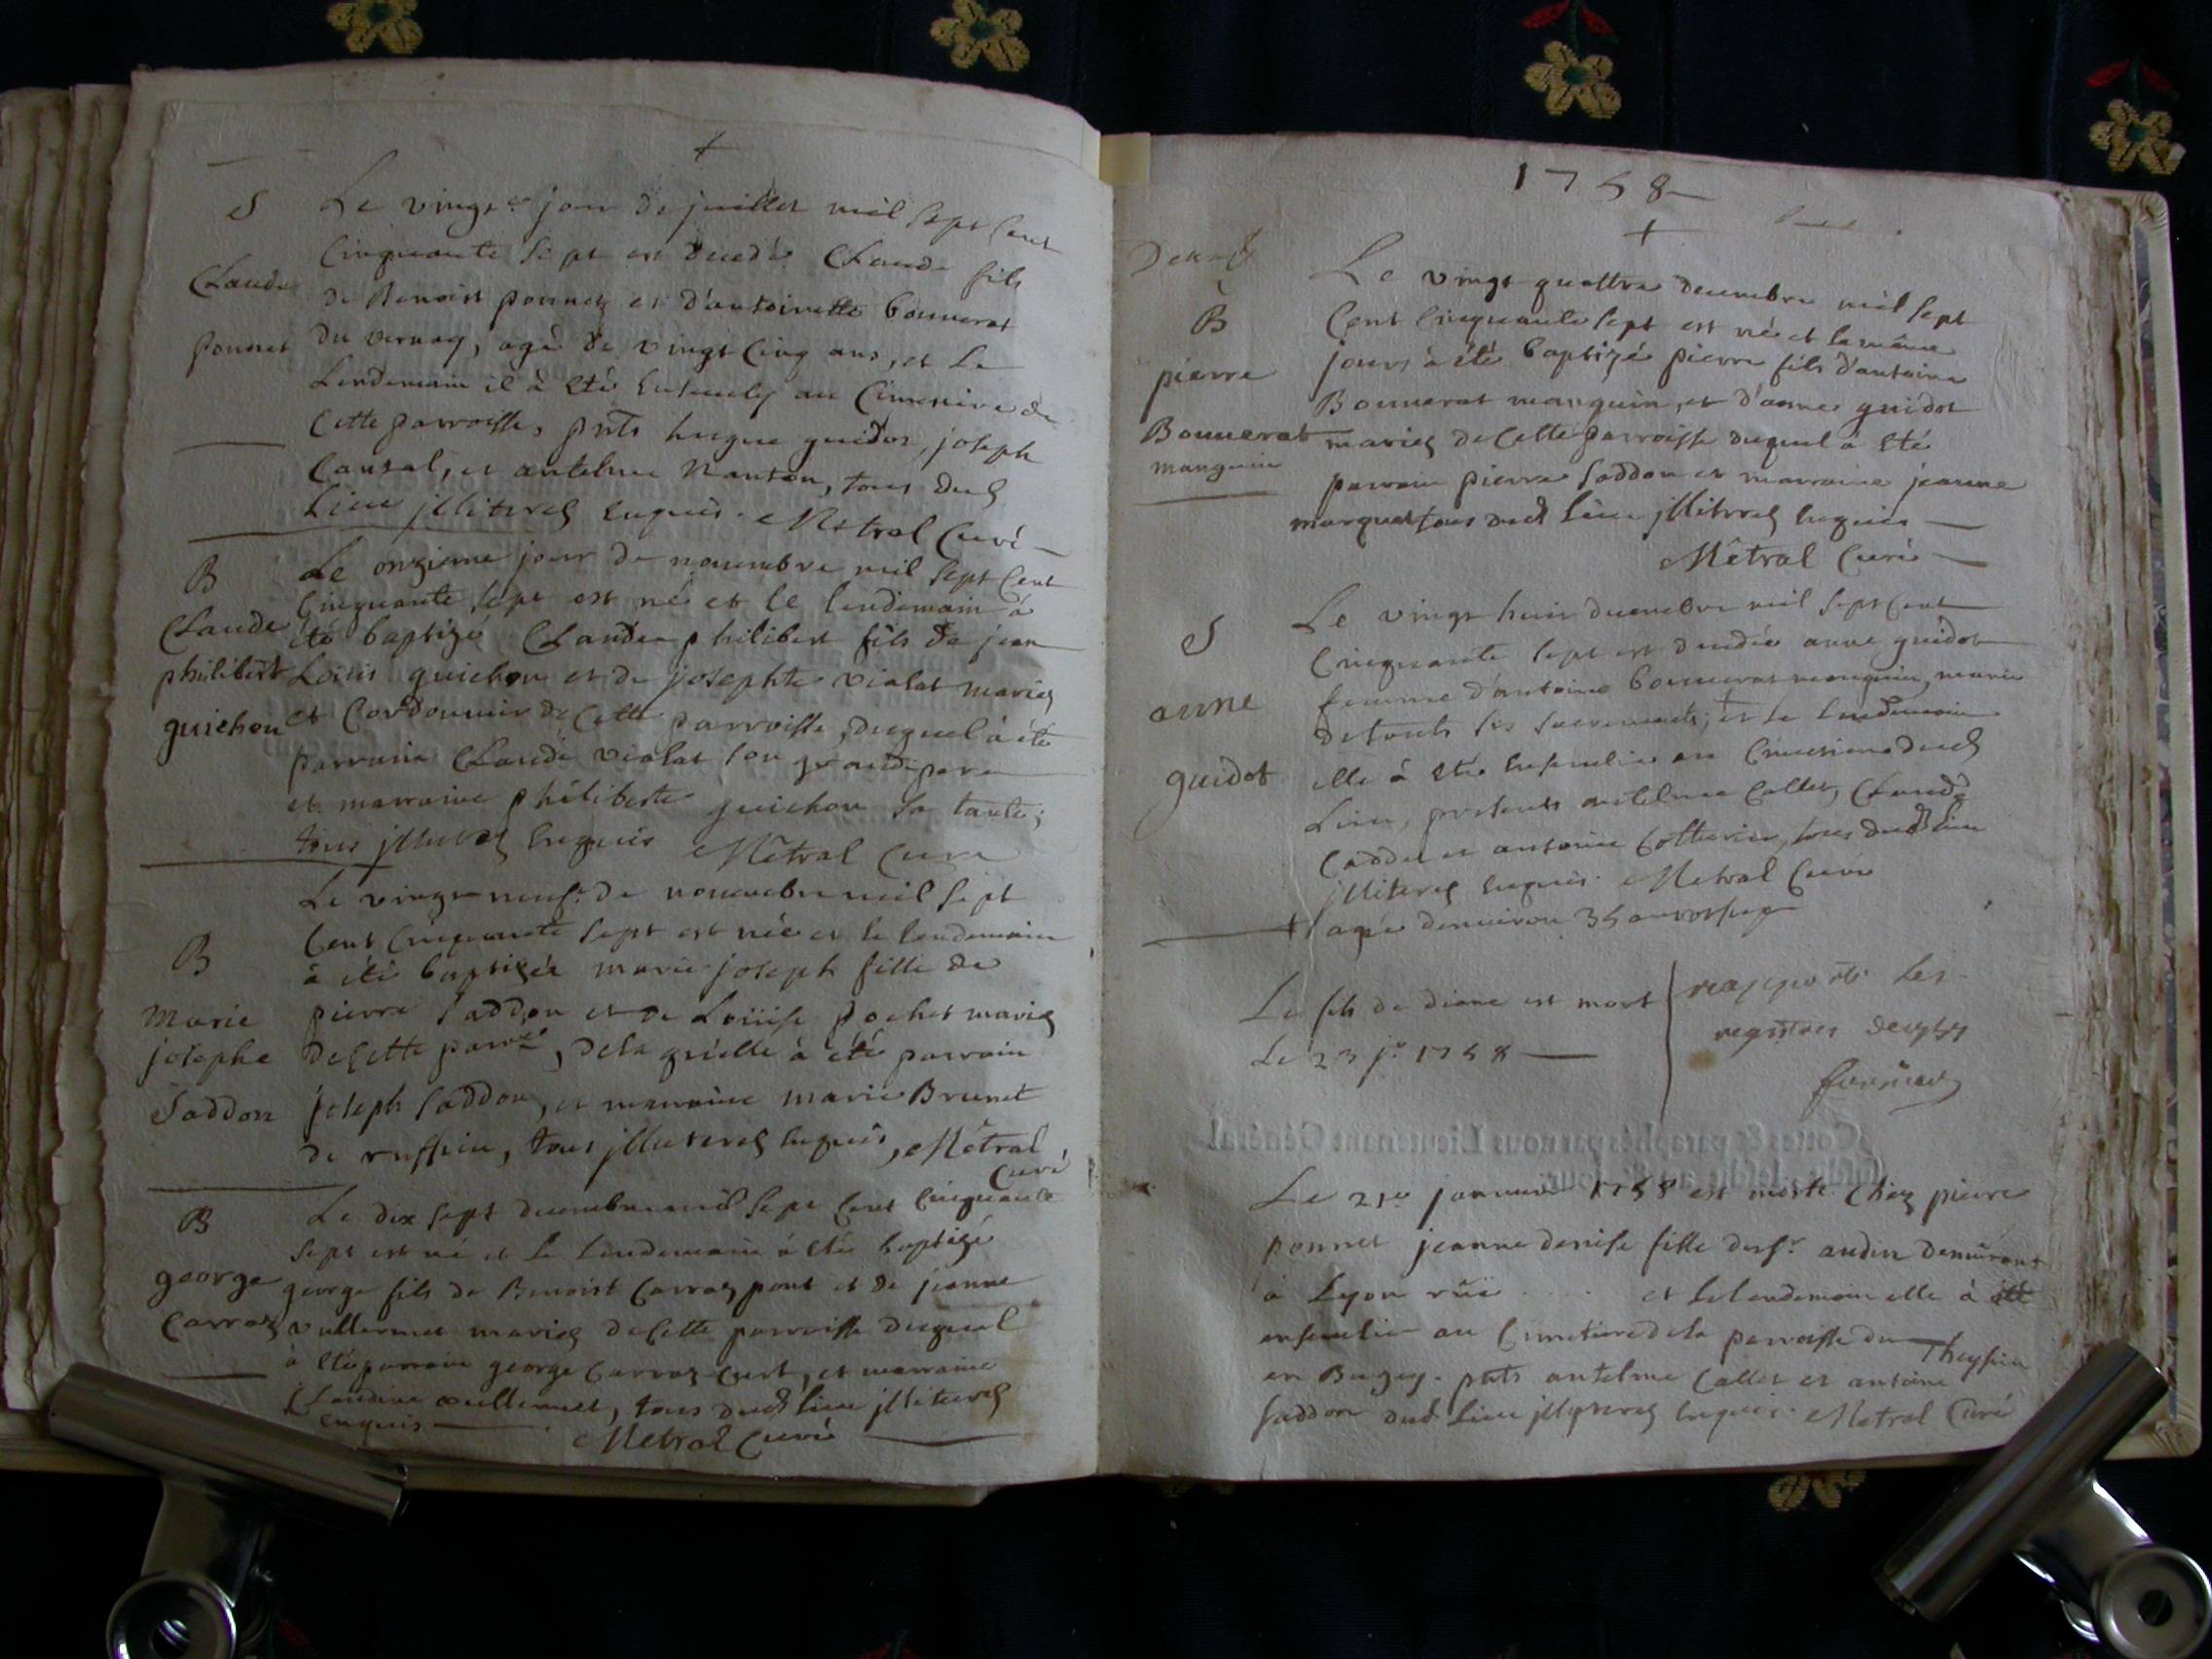 +
S
Claude
Ponnet
Le vingt.e jour de juillet mil sept cent
cinquante sept est decedé Claude fils
de Benoist ponnet et d'antoinette bonnerat
du vernay, agé de vingt cinq ans, et le
lendemain il à eté ensevely au Cimetiere de
cette parroisse, pnts hugue guidot, joseph
et antelme Nanton, tous dud
lieu jlliterés enquis. Métral Curé
B
Claude
philibert
guichon
Le onzieme jour de novembre mil sept cent
cinquante sept est né et le lendemain à
été baptizé Claude philibert fils de jean
Loüis guichon et de josephte violat mariés
et Cordonnier de cette parroisse, duquel à été
parrain Claude violat son grand pere
et marraine philiberte guichon sa tante;
tous jlliterés enquis Métral Curé
B
Marie
josephe
Saddon
Le vingt neuf.e de novembre mil sept
cent cinquante sept est née et le lendemain
à été baptizée marie joseph fille de
pierre Saddon et de Loüise pochet mariés
de cette parr.e, de la quelle à été parrain
joseph Saddon, et marraine marie Brunet
de ruffieu, tous jlliterés enquis, Métral
Curé
B
george
Carraz
Le dix sept decembre mil sept cent cinquante
sept est né et le lendemain à eté baptizé
george fils de Benoist Carraz pont et de jeanne
vullermet mariés de cette parroisse duquel
à eté parrain george Carraz curt, et marraine
Claudine vullermet, tous dud lieu jlliterés
enquis
Métral Curé
1758
+
B
pierre
Bonnerat
manguin
Le vingt quattre decembre mil sept
cent cinquante sept est né et le même
jours à été baptizé pierre fils d'antoine
Bonnerat manguin, et d'anne guidot
mariés de cette parroisse duquel à eté
parrain pierre Saddon et marraine jeanne
marquet tous dud lieu jlliterés enquis
Métral Curé
S
anne
guidot
Le vingt huit decembre mil sept cent
cinquante sept est decedée anne guidot
femme d'antoine bonnerat manguin, munie
de touts les sacrements, + et le lendemain
elle à eté ensevelie au Cimetiere dud
Lieu, presents antelme Collet, Claude
Caddet et antoine Cottarin, tous dud lieu
jlliterés enquis. Métral Curé
+ agée d'environ 35
Le fils de diane est mort
Le 23 j.r 1758
rapporté les
registres
Le 21.e janvier 1758 est morte chez pierre
ponnet jeanne denise fille du s.r audin demeurant
à Lyon rüe ..... et le lendemain elle à été
ensevelie au Cimetiere de la parroisse du Theysieu
en Bugey. pnts antelme Collet et antoine
Saddon dud lieu jlliterés enquis. Métral Curé